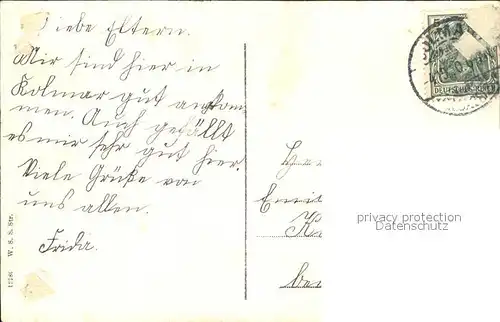 Liebe Eltern.
Wir sind hier in
Kolmar gut ankom-
men. Auch gefällt
es mir sehr gut hier.
Viele Grüße von
uns allen.
Frida.
W. S. S. Str.
DEUTSCHES REICH
privacy protection
Datenschutz